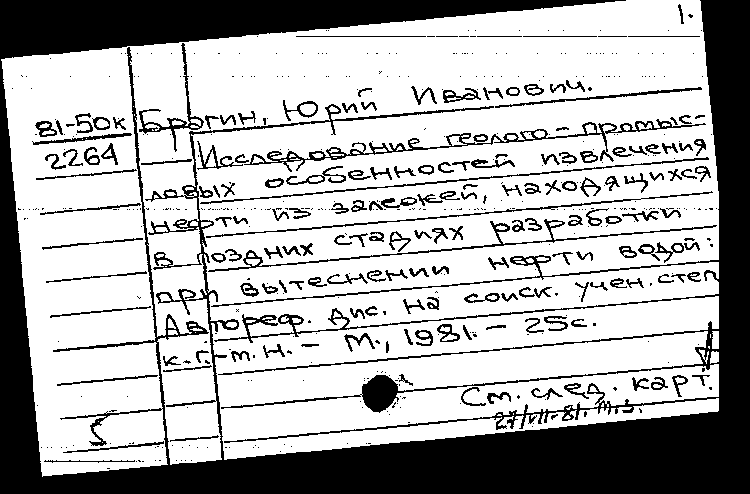 1.
81-50к Брагин, Юрий Иванович.
2264 Исследование геолого-промыс-
ловых особенностей извлечения
нефти из залежей, находящихся
в поздних стадиях разработки
при вытеснении нефти водой:
Автореф. дис. на соиск. учен. степ
к. г.-м. н. - М., 1981. - 25с.
См. след. карт.
27/VII-81.
5